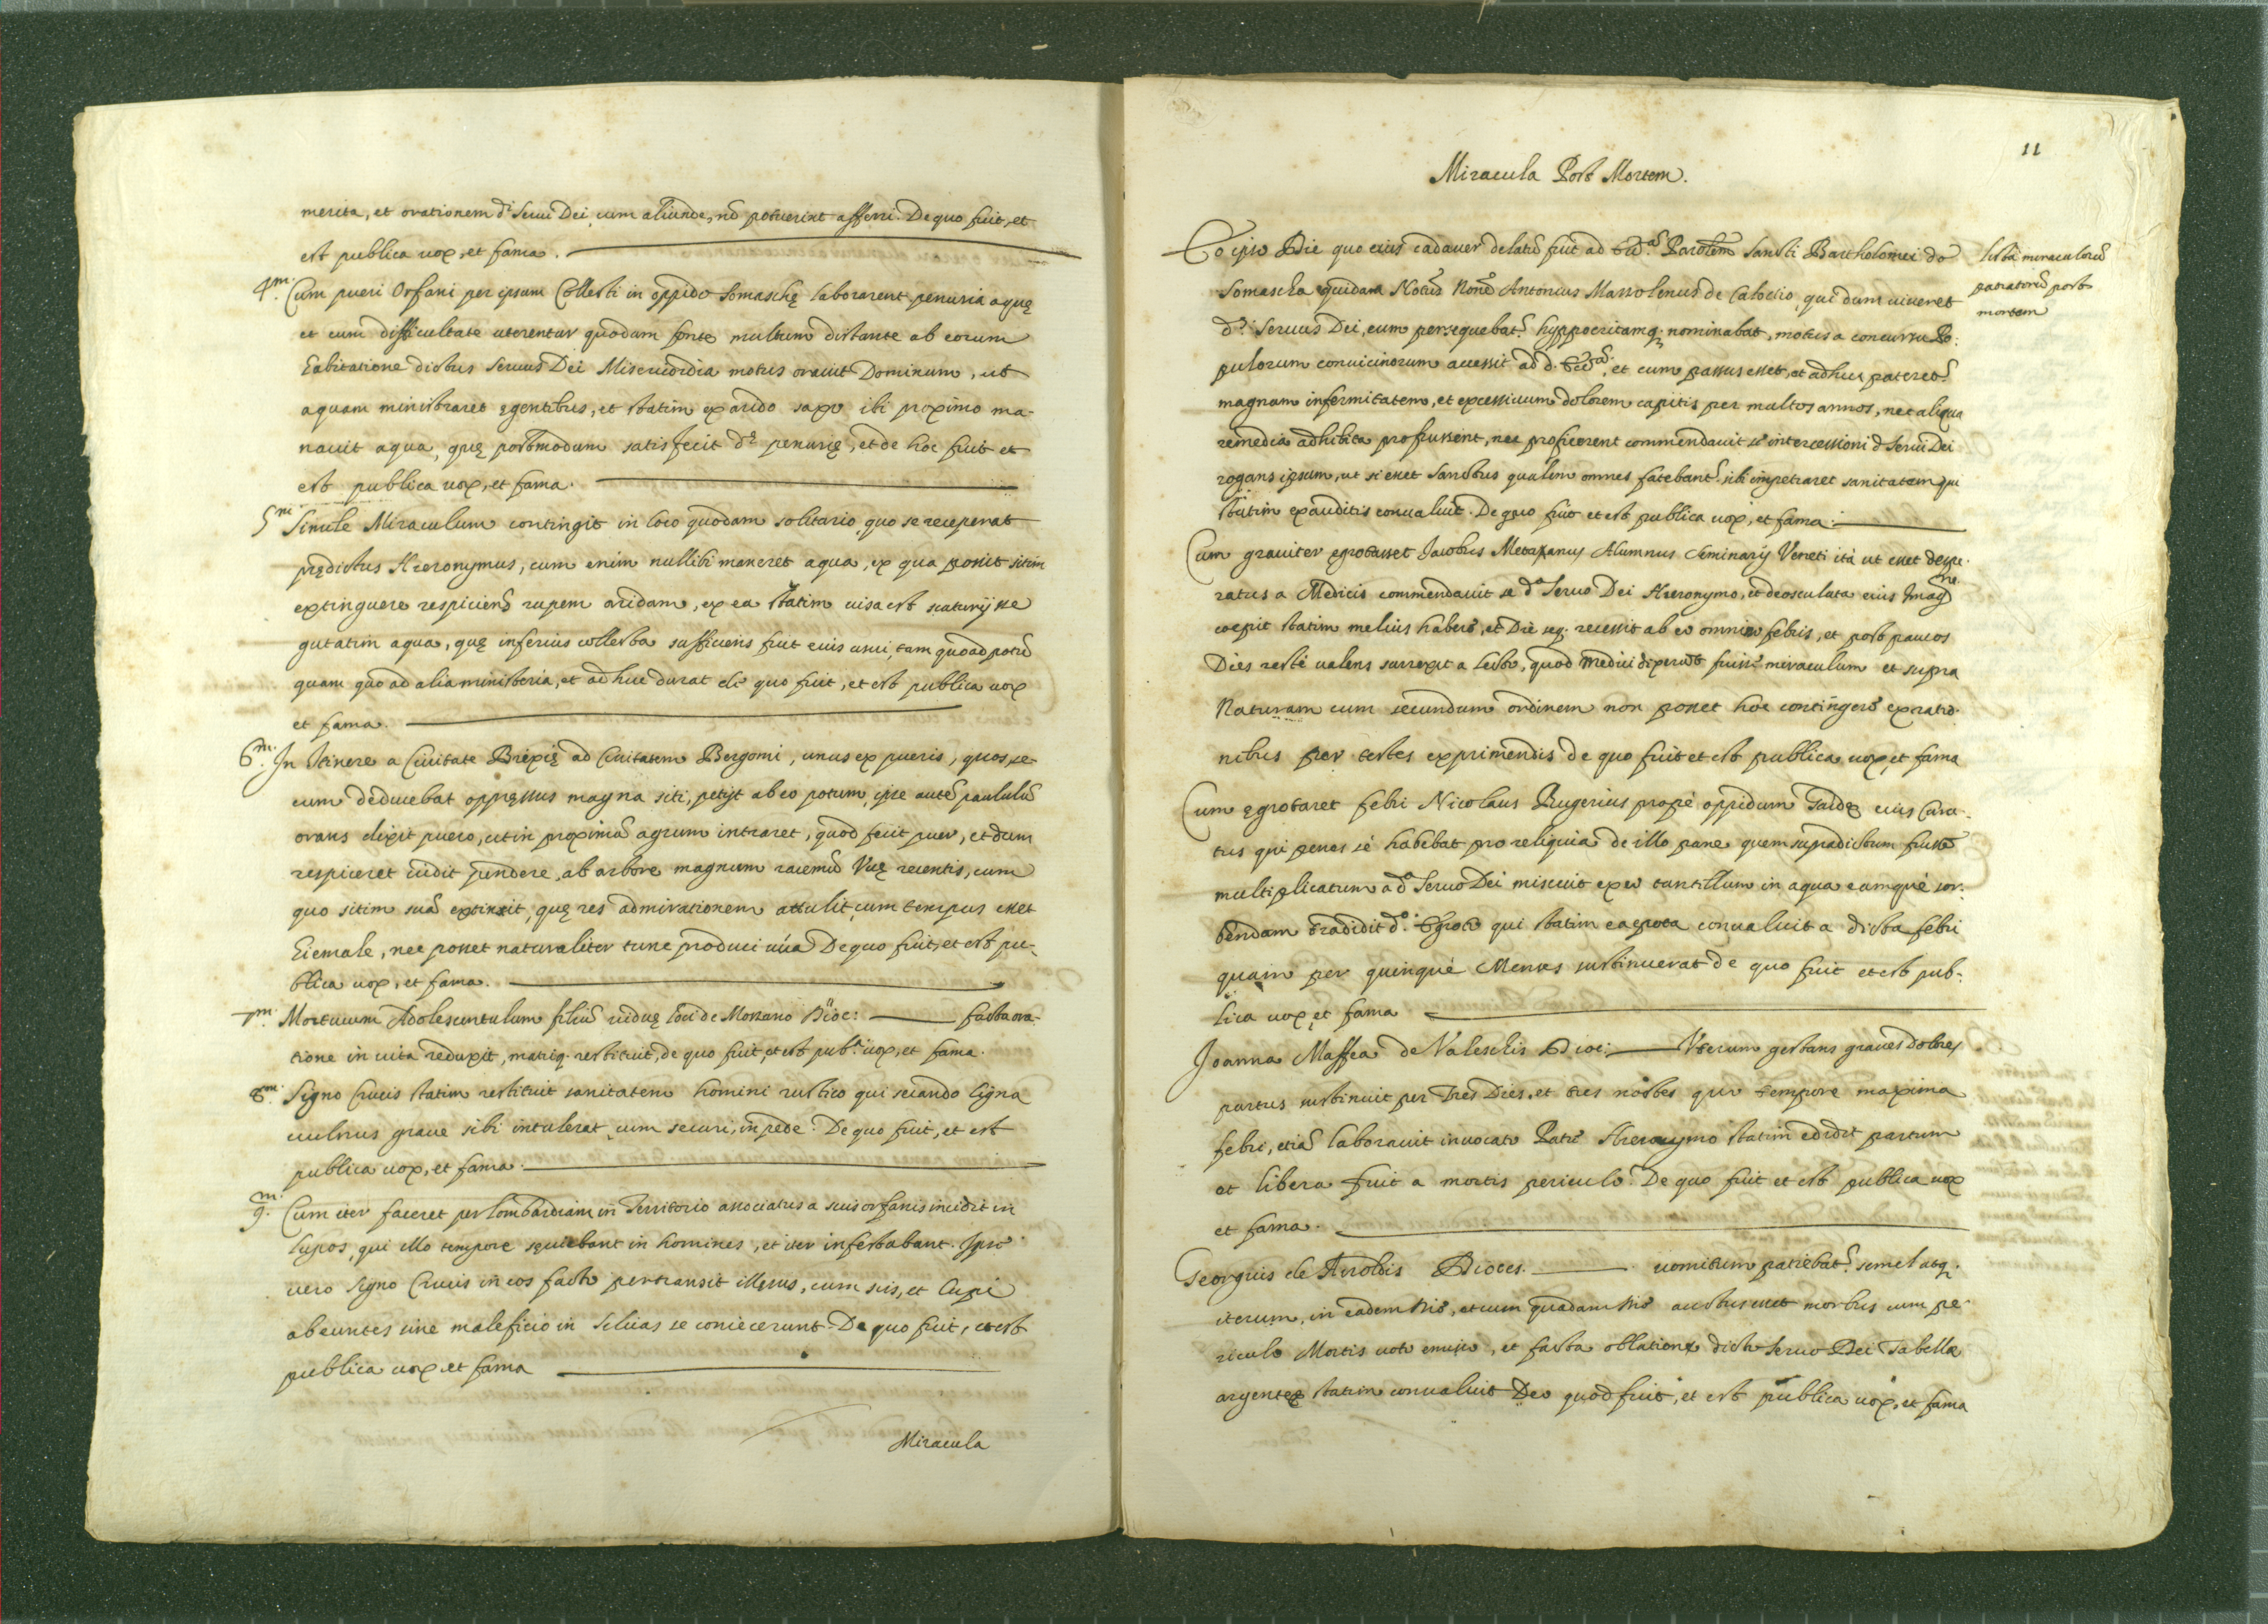 merita, et orationem d.i Serui Dei, cum aliunde, nõ potuerint afferri. De quo fuit, et
est publica uox, et fama.
4.m Cum pueri Orfani per ipsum Collecti in oppido Somaschę laborarent penuria aquę
et cum difficultate uterentur quodam fonte multum distante ab eorum
habitatione dictus Seruus Dei Misericordia motus orauit Dominum, ut
aquam ministraret egentibus, et statim ex arido saxo ibi proximo ma-
nauit aqua, quę postmodum satisfecit d.ę penurię, et de hoc fuit et
est publica uox, et fama.
5.m Simile Miraculum contingit in loco quodam solitario, quo se receperat
prędictus Hieronymus, cum enim nullibi maneret aqua, ex qua posset sitim
extinguere respiciens rupem aridam, ex ea statim uisa est scaturijsse
guttatim aqua, quę inferius collecta sufficiens fuit eius usui, tam quoad potũ
quam quo ad alia ministeria, et ad huc durat de quo fuit, et est publica uox
et fama.
6.m In Itinere a Ciuitate Brixię ad Ciuitatem Bergomi, unus ex pueris, quos se-
cum deducebat oppręssus magna siti, petijt ab eo potum, ipse autẽ paululũ
orans dixit puero, ut in proximũ agrum intraret, quod fecit puer, et dum
respiceret uidit pendere, ab arbore magnum racemũ Vuę recentis, cum
quo sitim suã extinxit, quę res admirationem attulit, cum tempus esset
hiemale, nec posset naturaliter tunc produci uua De quo fuit, et est pu-
blica uox, et fama.
7.m Mortuum Adolescentulum filiũ uiduę loci de Mossano Dioc: facta ora-
tione in uita reduxit, matriq. restituit, de quo fuit, et est pub.a uox, et fama.
8.m Signo Crucis statim restituit sanitatem homini rustico qui secando ligna
uulnus graue sibi intulerat, cum securi, in pede. De quo fuit, et est
publica uox, et fama.
9.m Cum iter faceret per lombardiam in Territorio associatus a suis orfanis incidit in
lupos, qui illo tempore sęuiebant in homines, et iter infestabant. Ipso
uero signo Crucis in eos facto pertransit illęsus, cum suis, et lupi
abeuntes sine maleficio in Siluas se coniecerunt. De quo fuit, et est
publica uox et fama
Miracula
11
Miracula Post Mortem.
Eo ipso Die quo eius cadauer delatũ fuit ad Parolem Sancti Bartholomei de
Somascha quidam Notus nomẽ Antonius Massolenus de Calolcio, qui dum uiueret
d.s Seruus Dei, eum persequebatur hyppocritamq. nominabat, motus a concursu Po-
pulorum conuicinorum accessit ad d. et cum passus esset, et adhuc pateretur
magnam infermitatem, et excessiuum dolorem capitis per multos annos, nec aliqua
remedia adhibita profuissent, nec proficerent commendauit se intercessioni d. Serui Dei
rogans ipsum, ut si esset Sanctus qualem omnes fatebant. sibi impetraret sanitatem qui
statim exauditis conualuit. De quo fuit et est publica uox, et fama.
lista miraculorũ
patratorũ post
mortem
Cum grauiter egrotasset Jacobus Alumnus Seminarij Veneti ità ut esset despe-
ratus a Medicis commendauit se d.o Seruo Dei Hieronymo, et deosculata eius Imag.ne
coepit statim melius habere, et Die seq. recessit ab eo omnino febris, et post paucos
Dies rectè ualens surrexit a lecto, quod medici dixerunt fuisse miraculum et supra
Naturam cum secundum ordinem non posset hoc contingere ex ratio-
nibus per testes exprimendis de quo fuit et est publica uox, et fama
Cum ęgrotaret febri Nicolaus Rugerius propè oppidum eius Cura-
tus qui penes sè habebat pro reliquia de illo pane quem supradictum fuisse
multiplicatum a d.o Seruo Dei miscuit ex eo tantillum in aqua eamque sor-
bendam tradidit d.o Egroto qui statim ea epota conualuit a dicta febri
quam per quinque Menses sustinuerat de quo fuit et est pub-
lica uox et fama
Joanna Maffea de Valeschis Dioc: Vterum gestans graues dolores
partus sustinuit per tres Dies, et tres noctes quo tempore maxima
febri, etiã laborauit inuocato Patre Hieronymo statim edidit partum
et libera fuit a mortis periculo. De quo fuit et est publica uox
et fama.
Georgius de Airoldis Dioces. uomitum patiebat. semel atq.
iterum, in eadem die, et cum quadam die auctus esset morbus cum pe-
riculo Mortis uoto emisso, et facta oblatione dicto Seruo Dei Tabellę
argenteę statim conualuit Deo quod fuit, et est publica uox, et fama